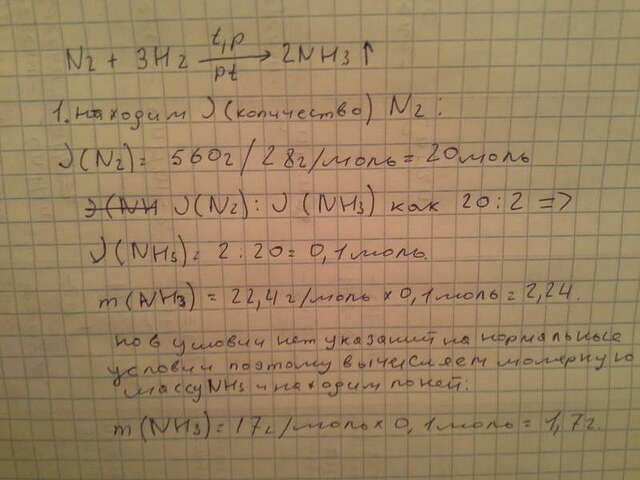 N2 + 3H2 t,p pt → 2NH3↑
1. находим ν(количество) N2:
ν(N2)= 560г/28г/моль=20моль
ν(NH ν(N2):ν(NH3) как 20:2 =>
ν(NH3)= 2:20=0,1моль.
m(NH3)=22,4г/моль×0,1моль=2,24.
но в условии нет указаний на нормальные
условии поэтому вычисляем молярную
массу NH3 и находим по ней:
m(NH3)=17г/моль×0,1моль=1,7г.